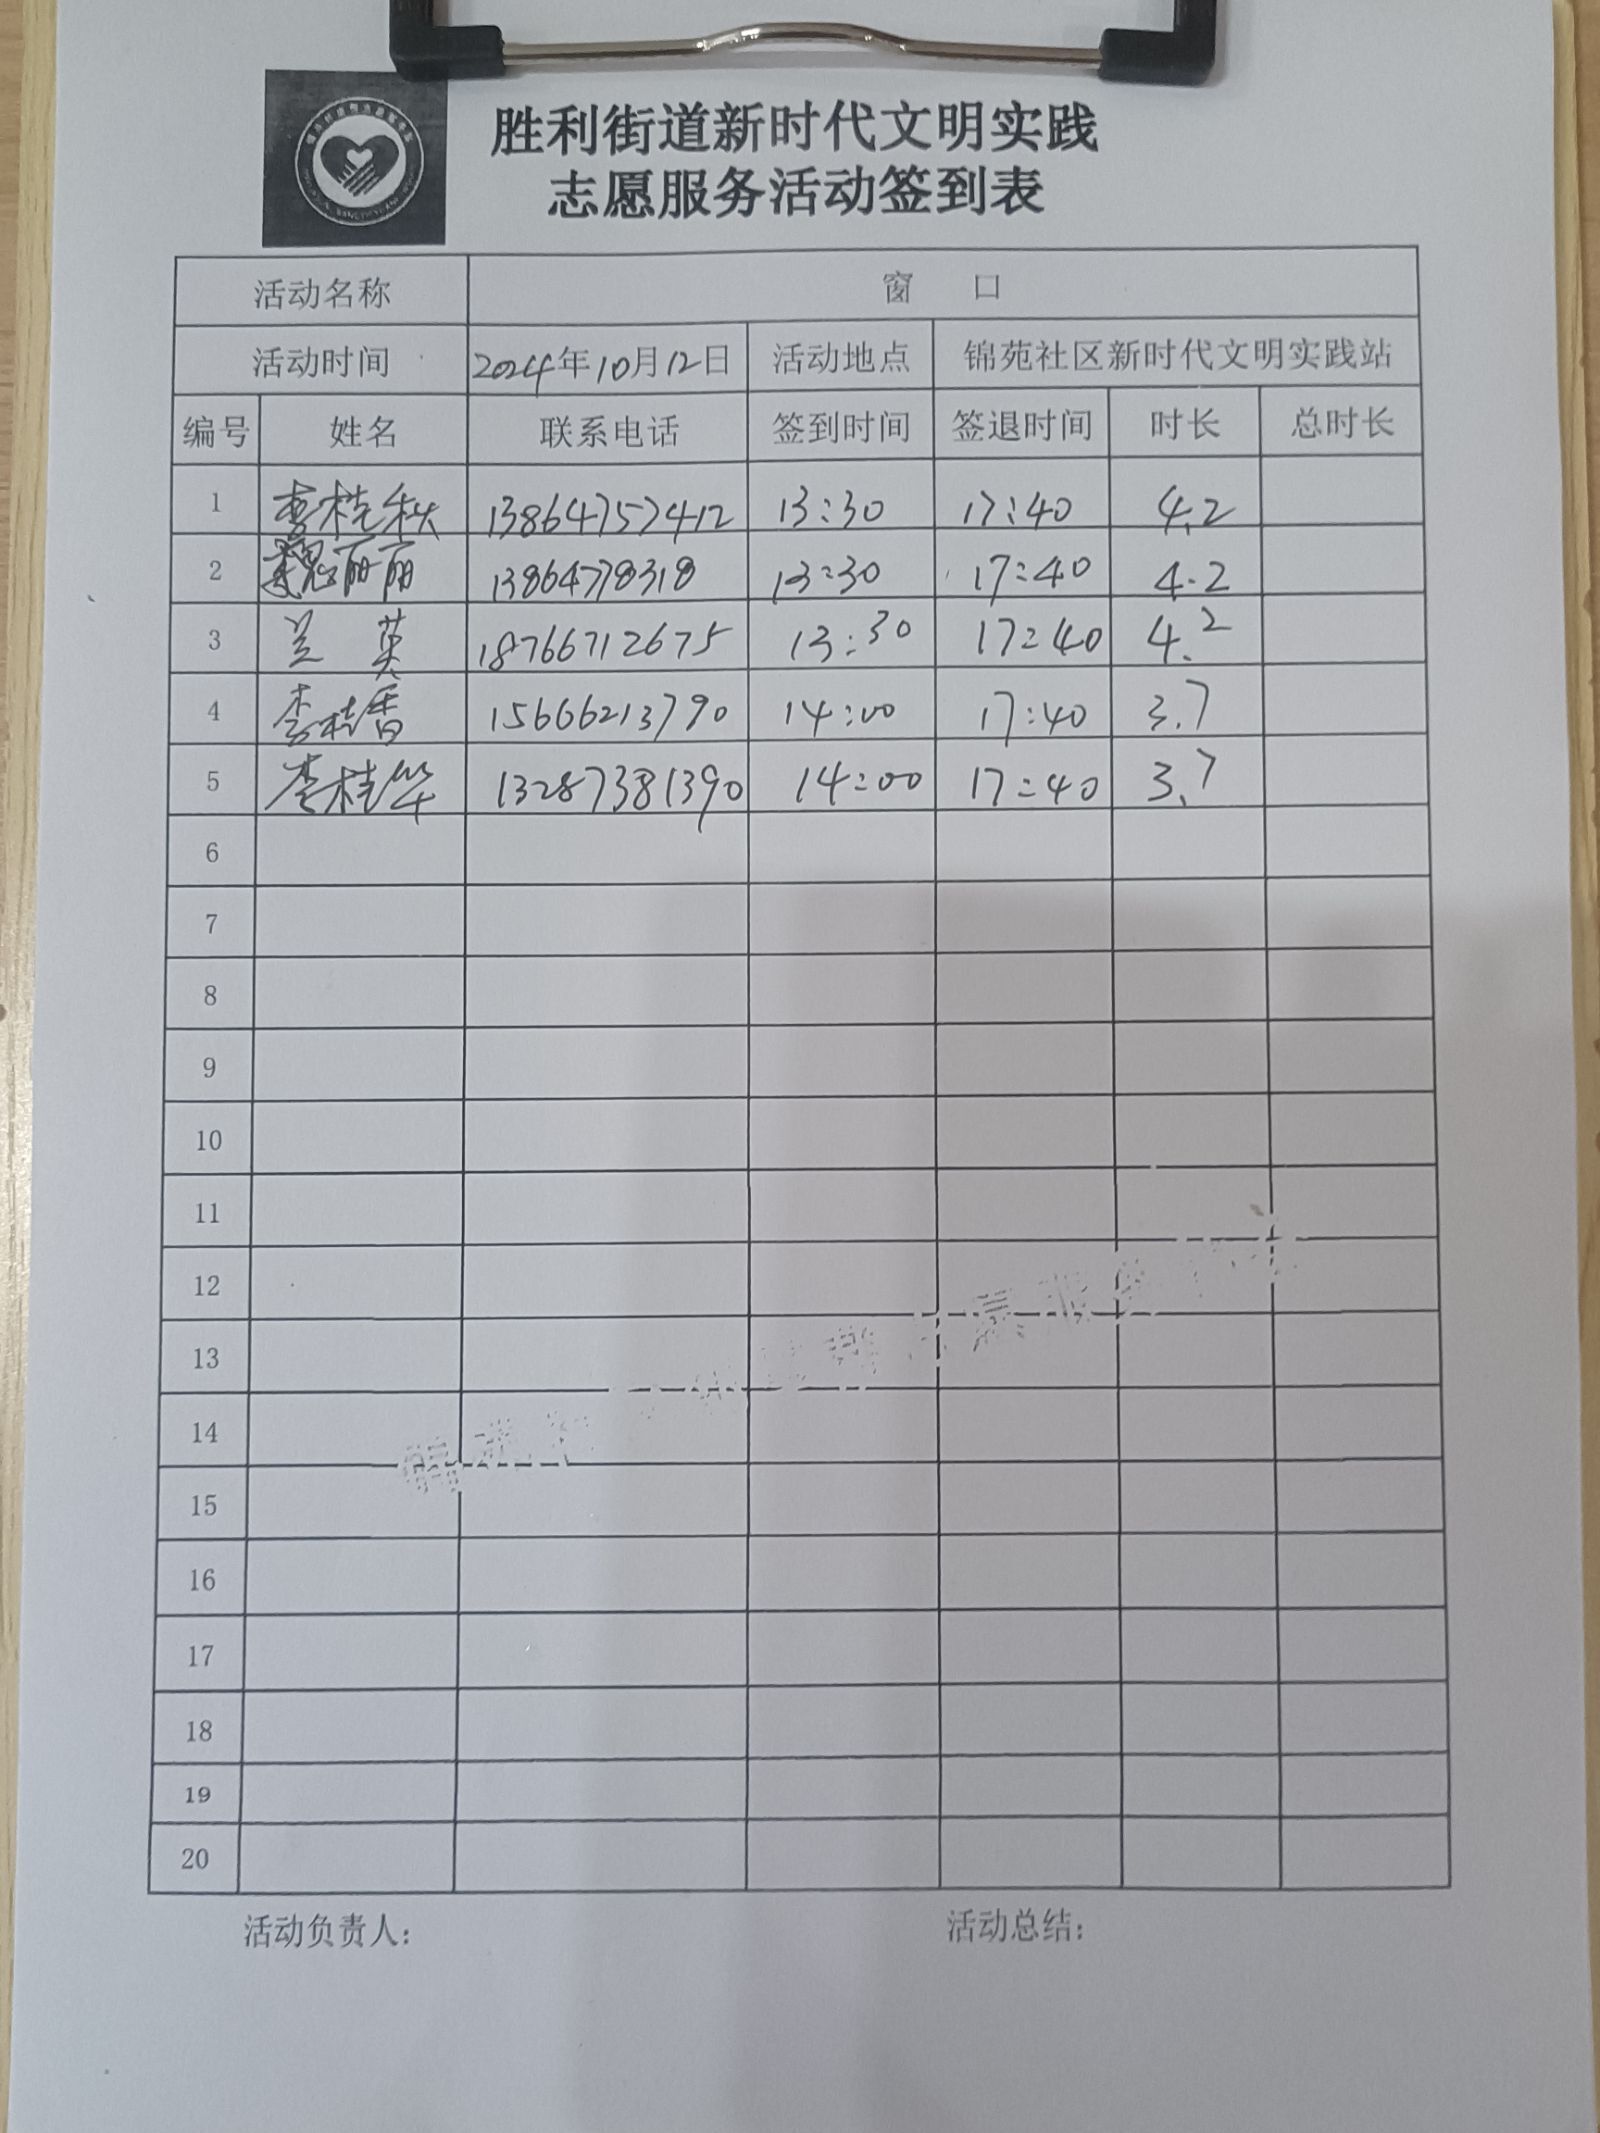 胜利街道新时代文明实践
志愿服务活动签到表
活动名称 窗 口
活动时间 2024年10月12日 活动地点 锦苑社区新时代文明实践站
编号 姓名 联系电话 签到时间 签退时间 时长 总时长
1 李桂秋 13864757412 13:30 17:40 4.2
2 魏丽丽 13864778318 13:30 17:40 4.2
3 兰英 18766712675 13:30 17:40 4.2
4 李桂香 15666213790 14:00 17:40 3.7
5 李桂华 13287381390 14:00 17:40 3.7
6
7
8
9
10
11
12
13
14
15
16
17
18
19
20
活动负责人: 活动总结: